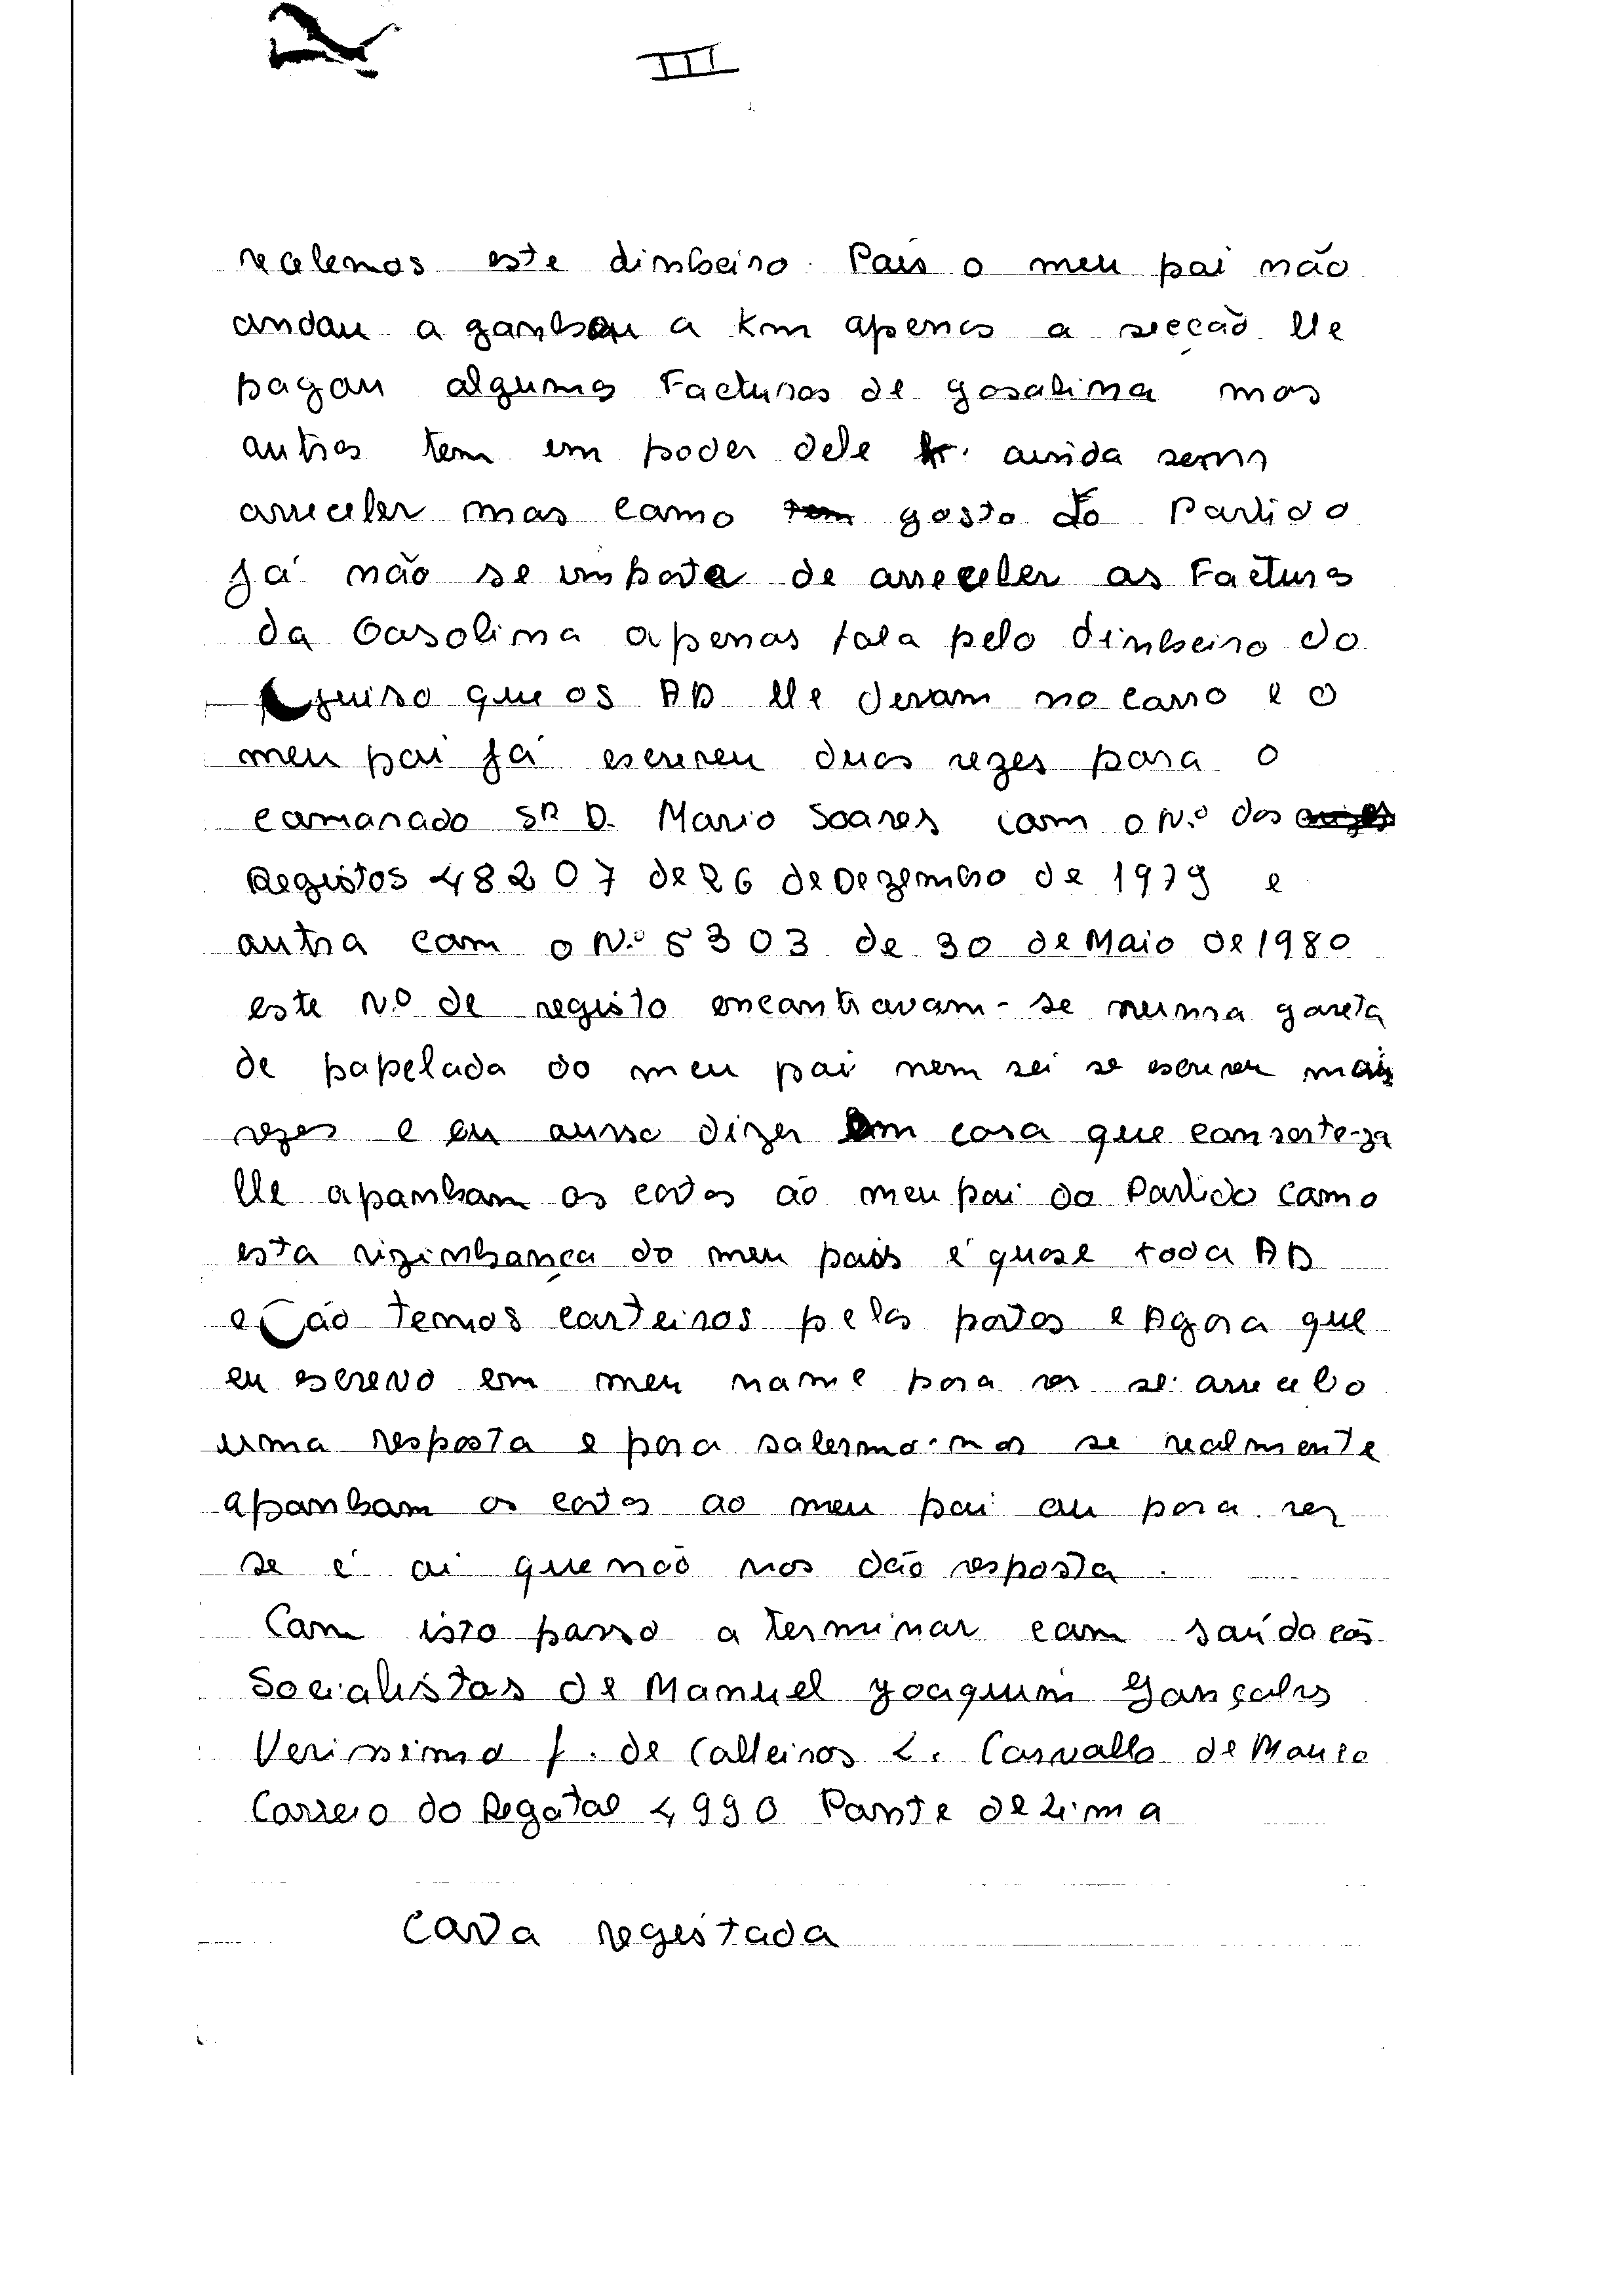 III
recebemos este dinheiro. Pois o meu pai não
andou a ganhou a Km apenas a secção lhe
pagou algumas Facturas de gasolina mas
outras tem em poder dele ainda sem
arreceber mas como gosto do Partido
já não se importe de arreceber as Facturas
da Gasolina apenas fala pelo dinheiro do
juiso que os AD lhe deram no carro e o
meu pai já escreveu duas vezes para o
camarado SR D. Mario Soares com o N.º dos
Registos 48207 de 26 de Dezembro de 1979 e
outra com o N.º 5303 de 30 de Maio de 1980
este N.º de registo encontravam-se numa gaveta
de papelada do meu pai nem sei se escreveu mais
vezes e eu ousso dizer em casa que comserteza
lhe apanham as cartas ão meu pai do Partido como
esta vizinhança do meu pais é quase toda AD
e ão temos carteiros pelas portas e Agora que
eu escrevo em meu nome para ver se arrecebo
uma resposta e para sabermo-nos se realmente
apanham as cartas ao meu pai ou para ver
se é ai que não nos dão resposta.
Com isto passo a terminar com saúdacõs
Socialistas de Manuel Joaquim Gonçalves
Verissimo f. de Calheiros L. Carvalho de Mouro
Correio do Regatal 4990 Ponte de Lima
Carta registada